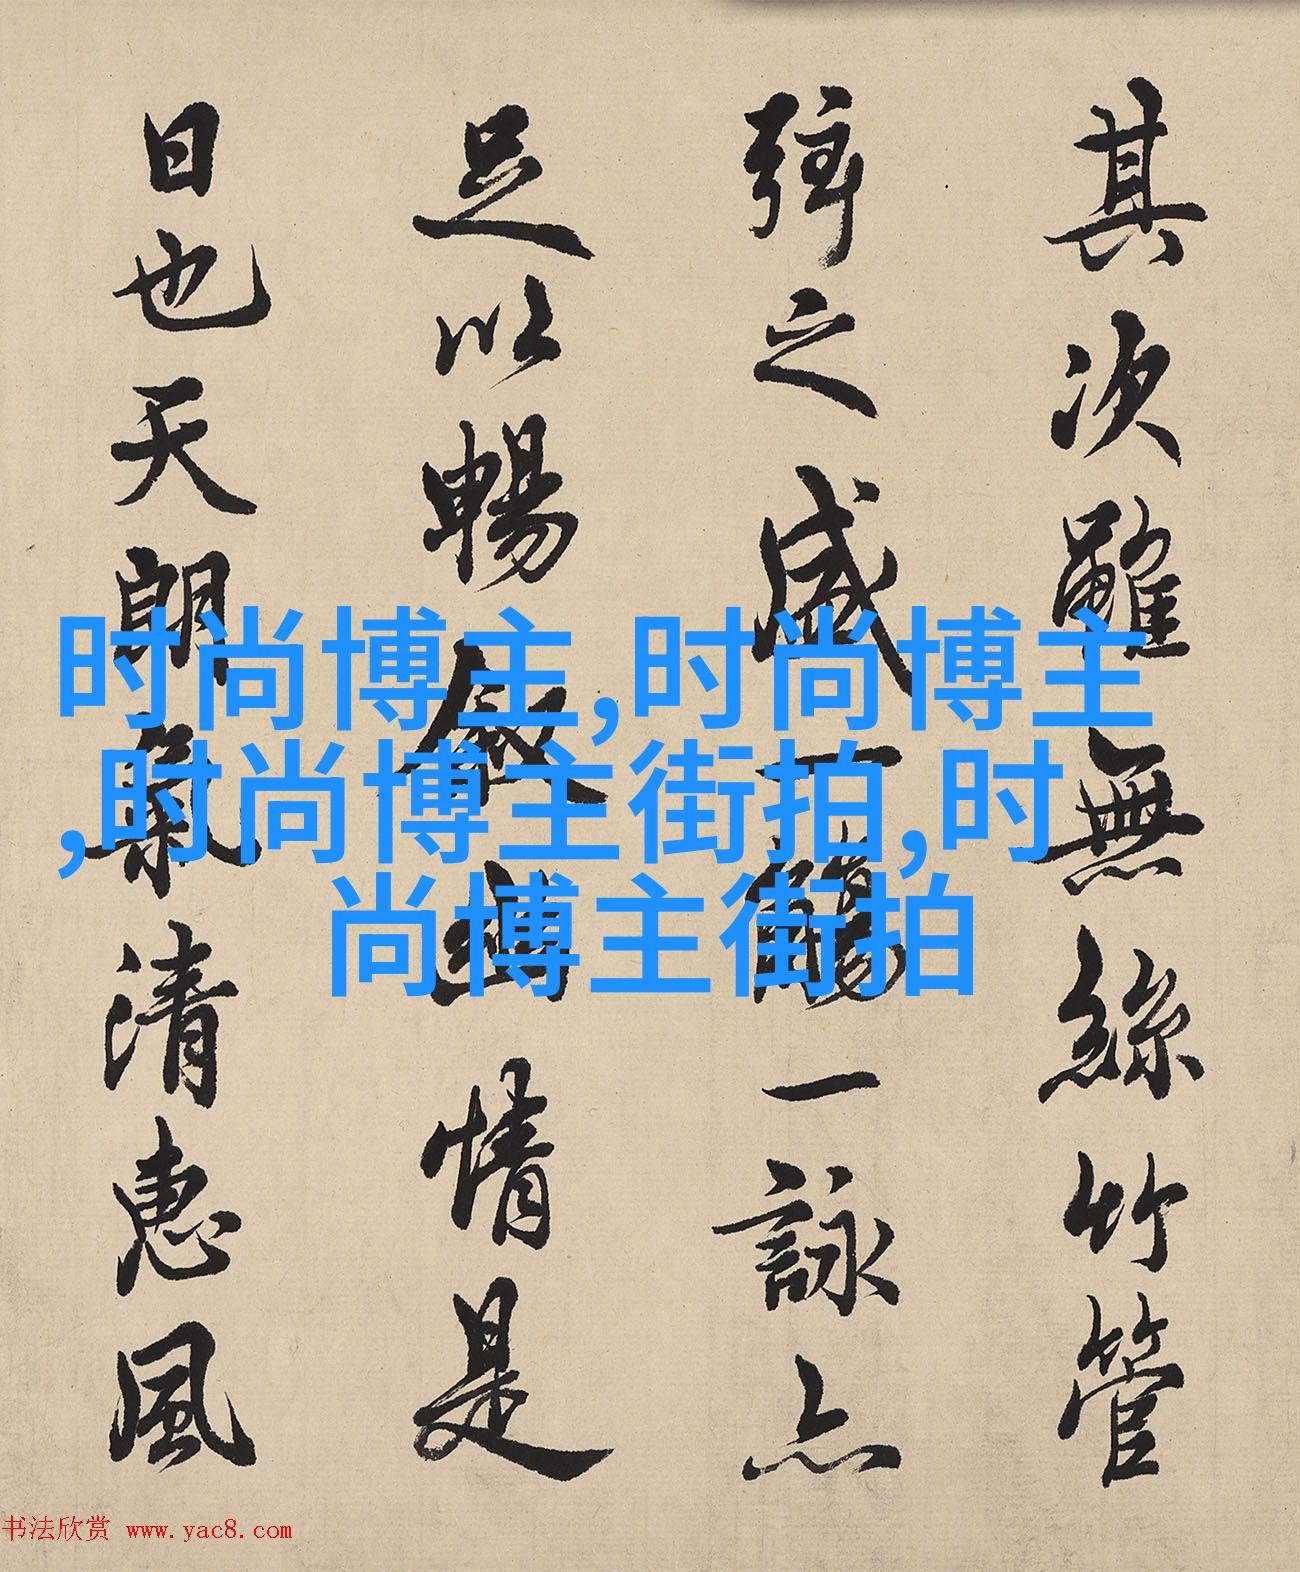 其次雖無絲竹管
弦之盛一觴一詠亦
足以暢敘幽情是
日也天朗氣清惠風
时尚博主,时尚博主
,时尚博主街拍,时
尚博主街拍
书法欣赏 www.yac8.com